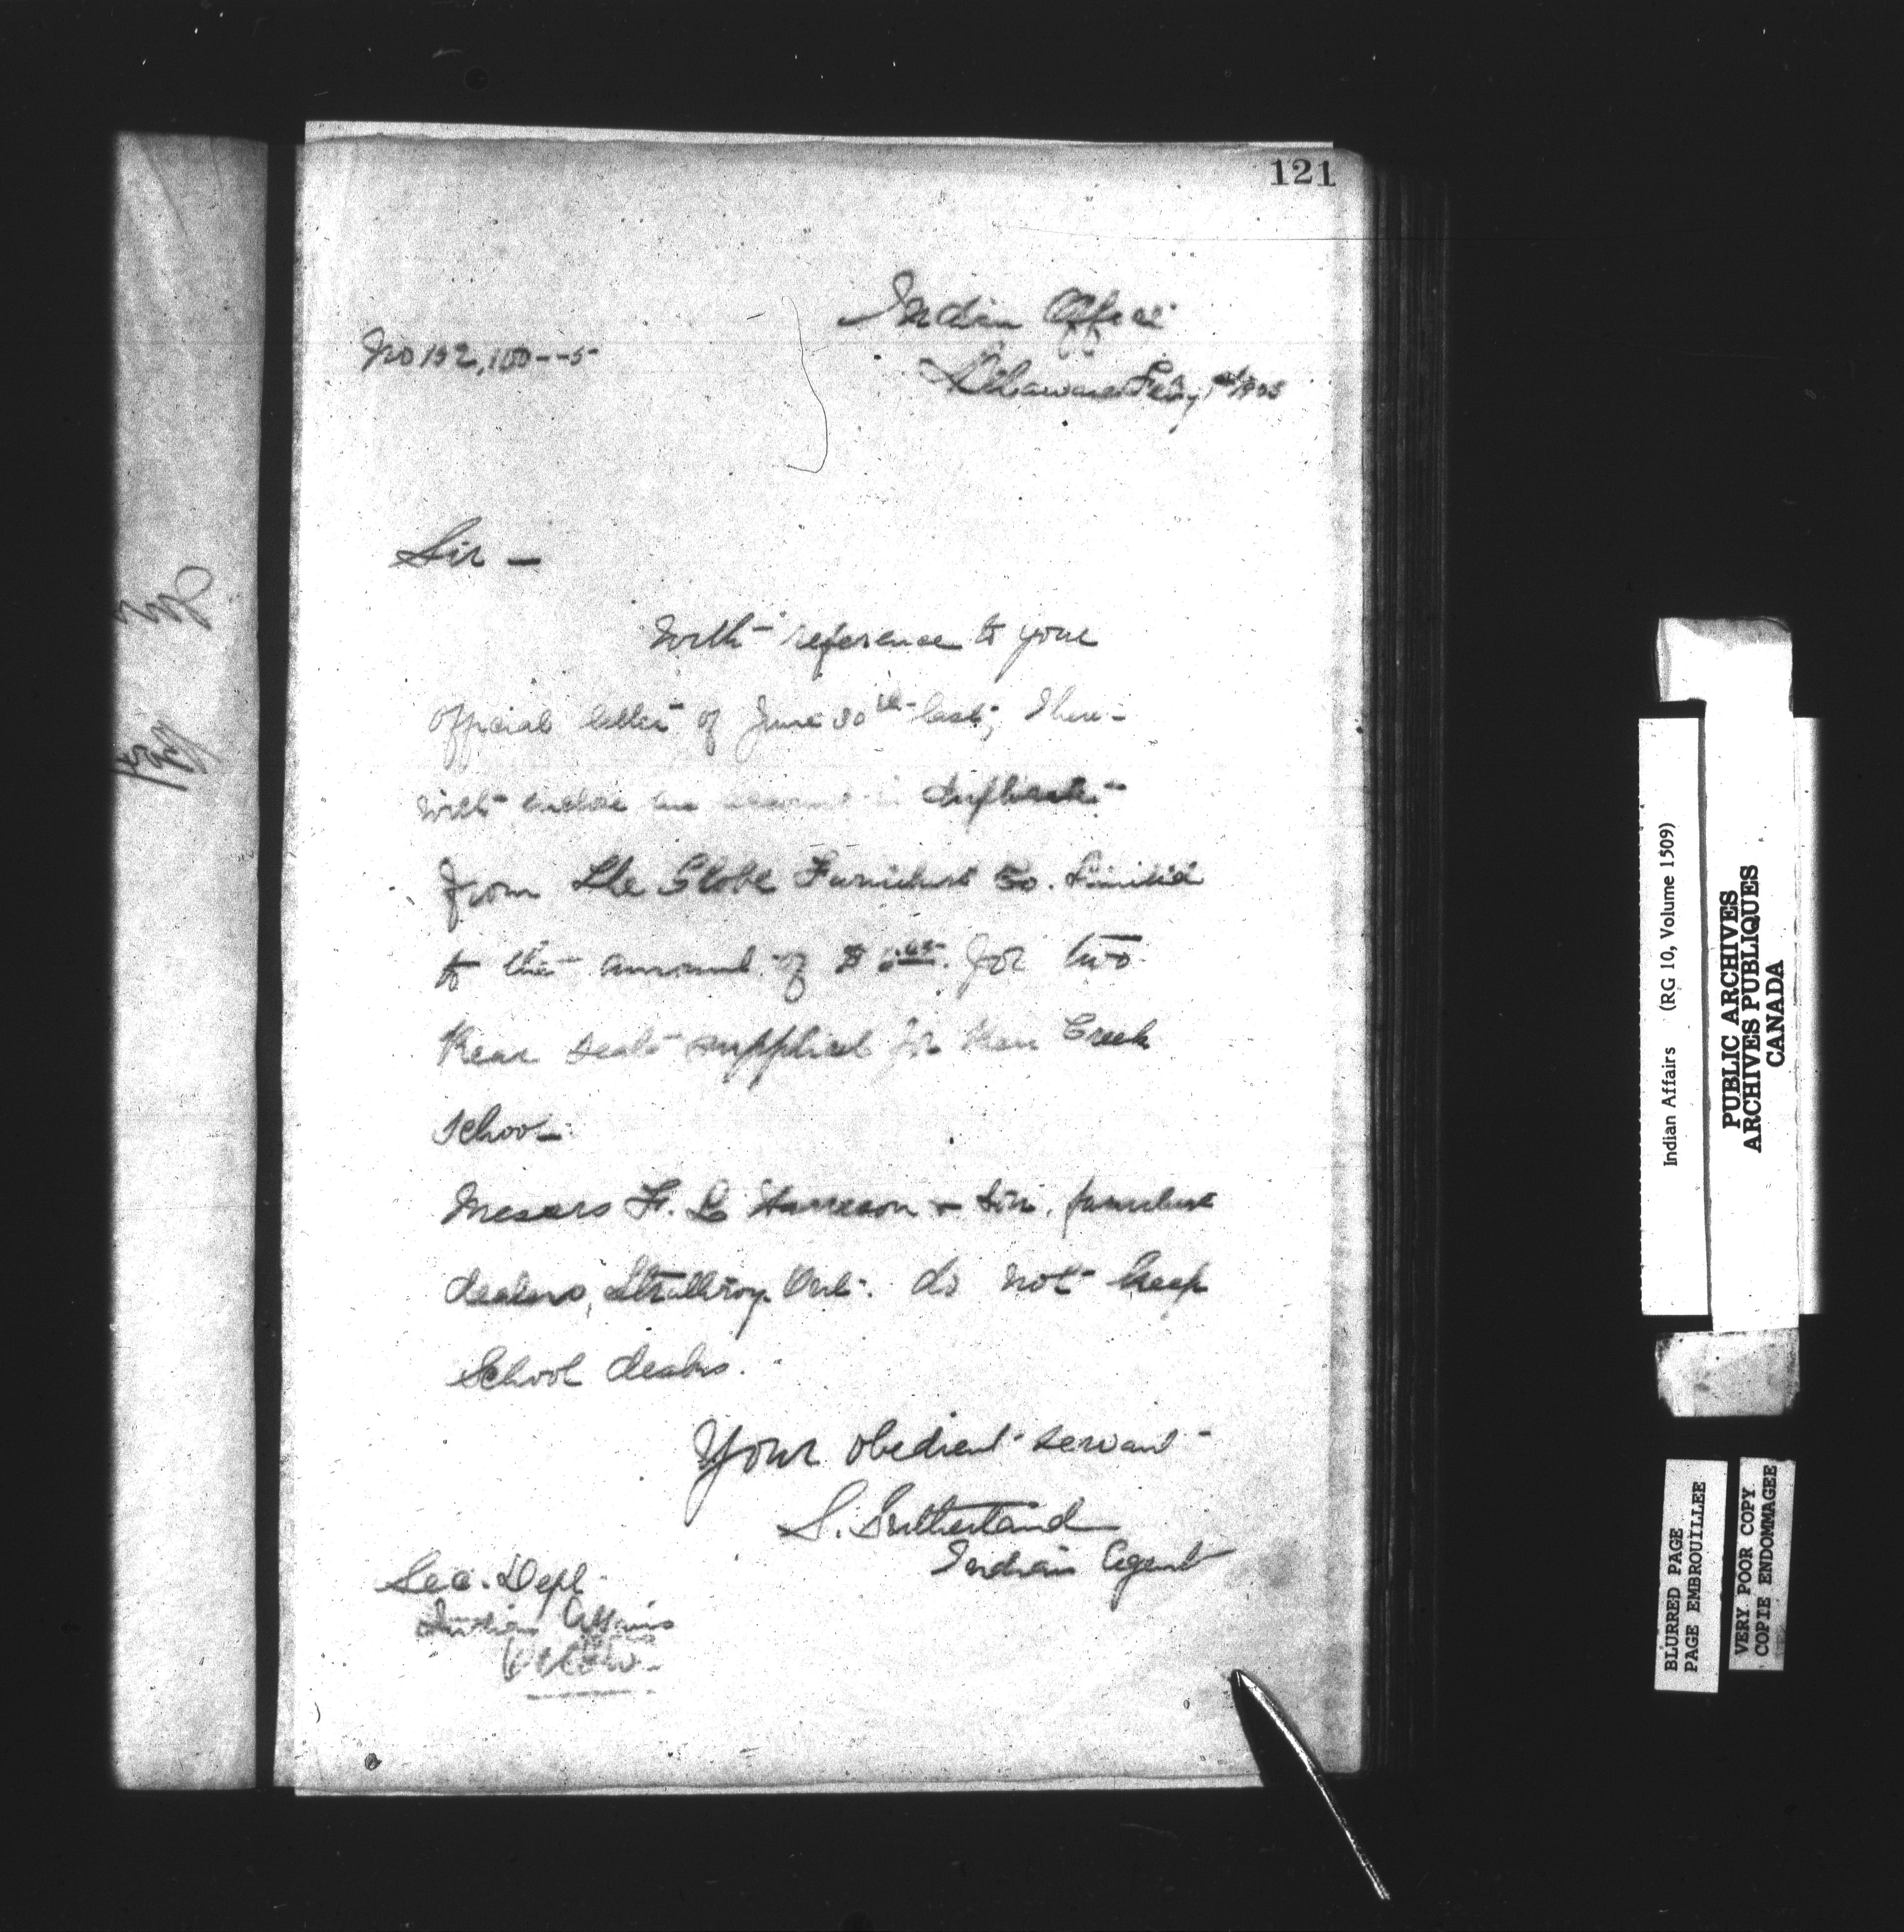 121
Indian Office
Delaware Feby 1st 1903
No 192,100--5
Sir —
With reference to your
official letter of June 30th last, I here-
with enclose an account in duplicate
from the Globe Furniture Co. Limited
to the amount of $ for two
Rear seats supplied for Bear Creek
School.
Messrs F. L & Son, furniture
dealers, Strathroy Ont. do not keep
School
Your obedient servant
S. Sutherland
Indian Agent
Sec. Dept.
Indian Affairs
Ottawa
Indian Affairs (RG 10, Volume 1509)
PUBLIC ARCHIVES
ARCHIVES PUBLIQUES
CANADA
BLURRED PAGE
PAGE EMBROUILLEE
VERY POOR COPY
COPIE ENDOMMAGEE